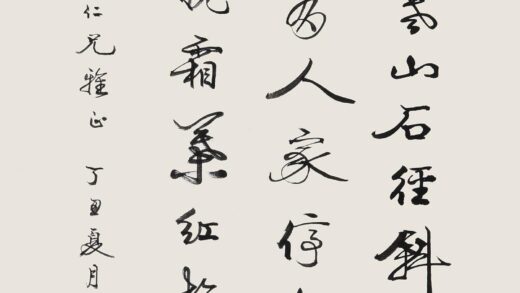 山石徑斜
人家停
霜葉紅
仁兄雅正 丁丑夏月